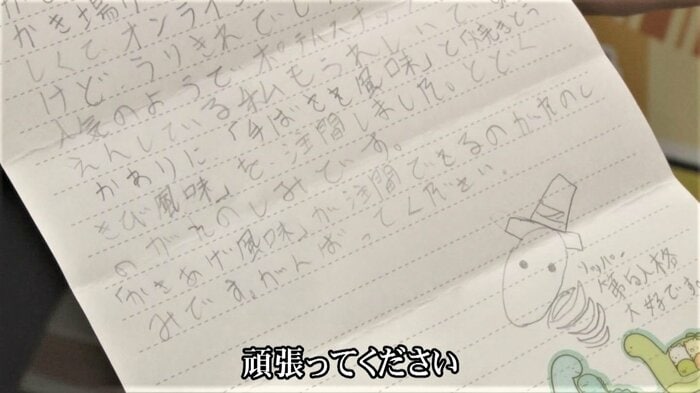 かき揚げ
しくて、オンライン
けど、うりきれでし
人気のようで、ポテトスナッ
えんしている私もうれしいで
がありに、「手ばさき風味」と「焼きとう
きび風味」を注聞しました。とどく
のがたのしみです。
「かきあげ風味」が注聞できるのがたのし
みです。がんばってください。
リッパー
第白人格
大好です。
頑張ってください